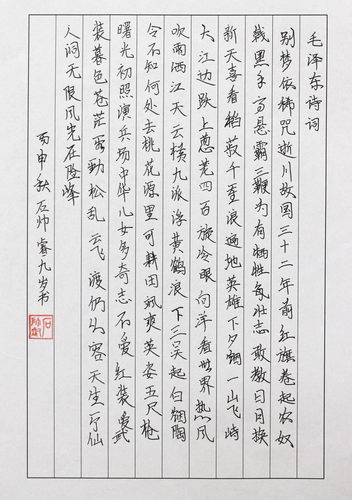 毛泽东诗词
别梦依稀咒逝川故国三十二年前红旗卷起农奴
戟黑手高悬霸主鞭为有牺牲多壮志敢教日月换
新天喜看稻菽千重浪遍地英雄下夕烟一山飞峙
大江边跃上葱茏四百旋冷眼向洋看世界热风
吹雨洒江天云横九派浮黄鹤浪下三吴起白烟陶
令不知何处去桃花源里可耕田飒爽英姿五尺枪
曙光初照演兵场中华儿女多奇志不爱红装爱武
装暮色苍茫看劲松乱云飞渡仍从容天生一个仙
人洞无限风光在险峰
丙申秋石帅睿九岁书